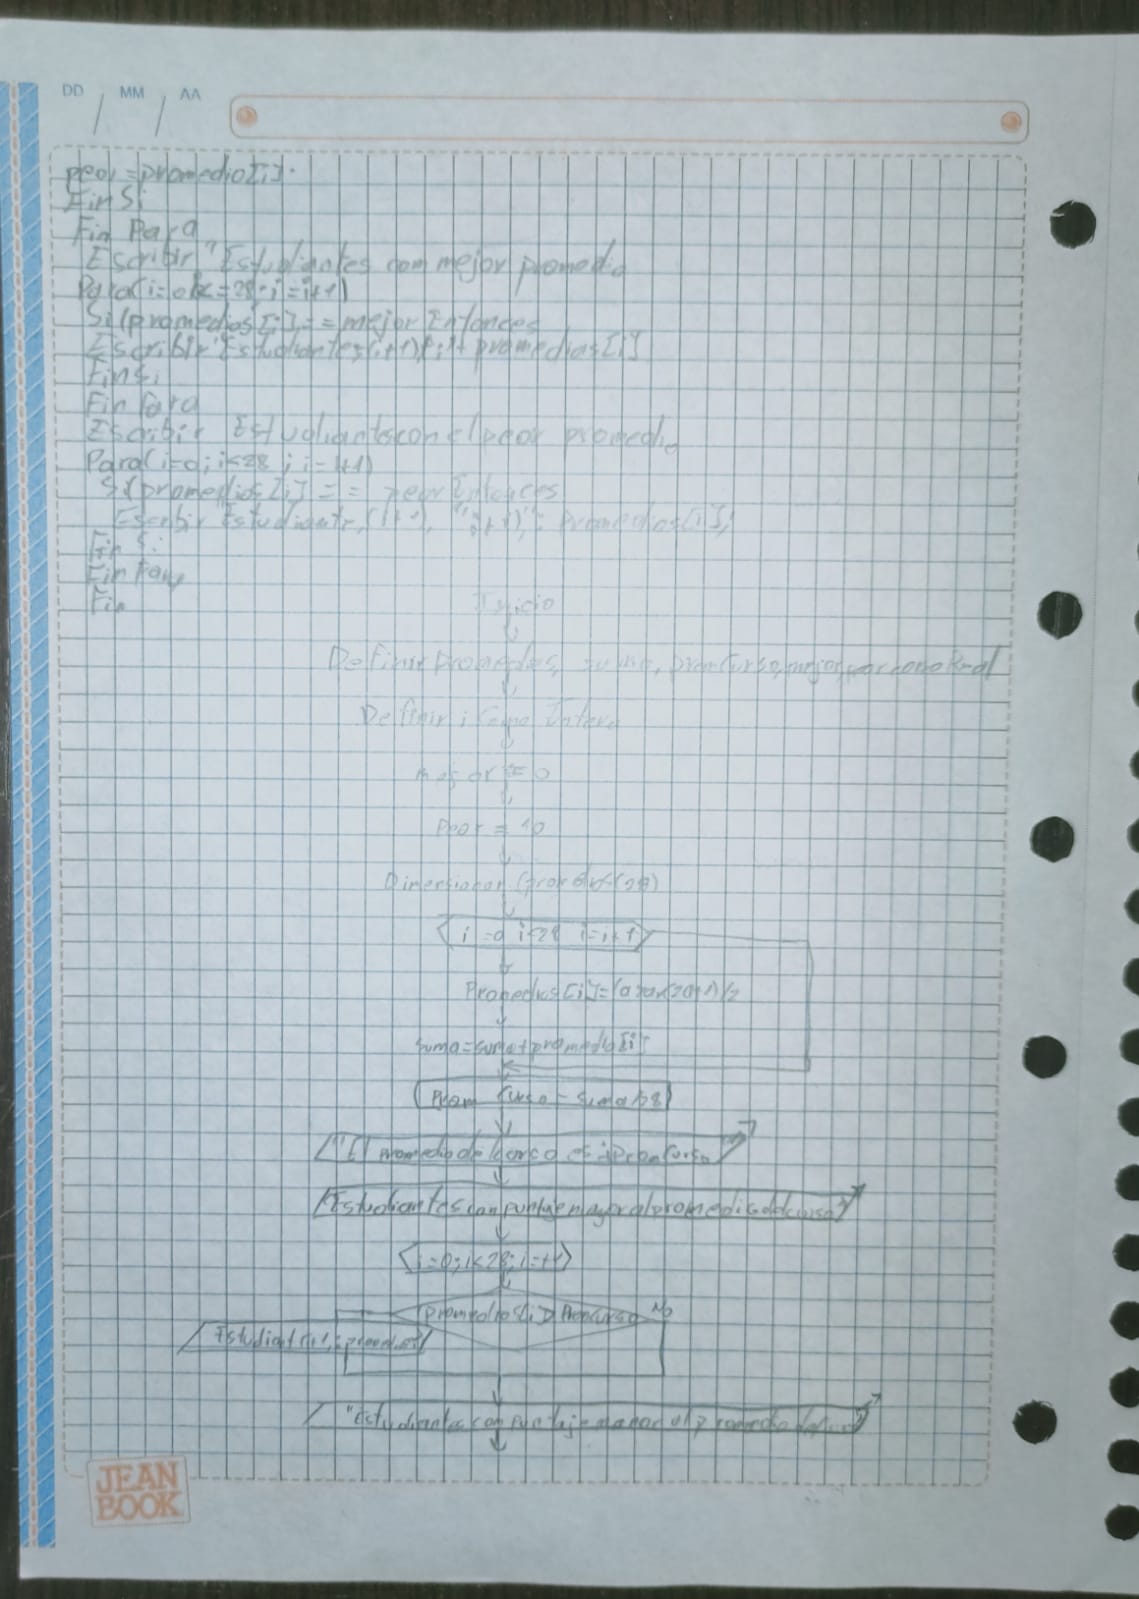 DD / MM / AA
peor = promedio[i].
Fin Si
Fin Para
Escribir "Estudiantes con mejor promedio
Para(i=0 i<=28; i=i+1)
Si(promedios[i] == mejor Entonces
Escribir "Estudiantes(i+1)";"+ promedios[i]
Fin Si
Fin Para
Escribir Estudiantes con el peor promedio
Para(i=0; i<28 ; i=i+1)
Si(promedios[i] == peor Entonces
Escribir Estudiante, (i+1), Promedios[i];
Fin Si
Fin Para
Fin
Inicio
Definir promedios, suma, promCurso, mejor, peor como Real
Definir i Como Entero
mejor = 0
Peor = 10
Dimensionar (promedios(28)
i =0 i<28 i=i+1
Promedios[i]=(azar(20)+1)/2
suma=suma+promedio[i]
Prom Curso = Suma/28
"El promedio del curso es ; PromCurso
"Estudiantes con puntaje mayor al promedio del curso"
i=0; i<28; i=+1
promedios[i] > PromCurso No
Estudiant(i+1,
"Estudiantes con puntaje menor al promedio del curso"
JEAN
BOOK